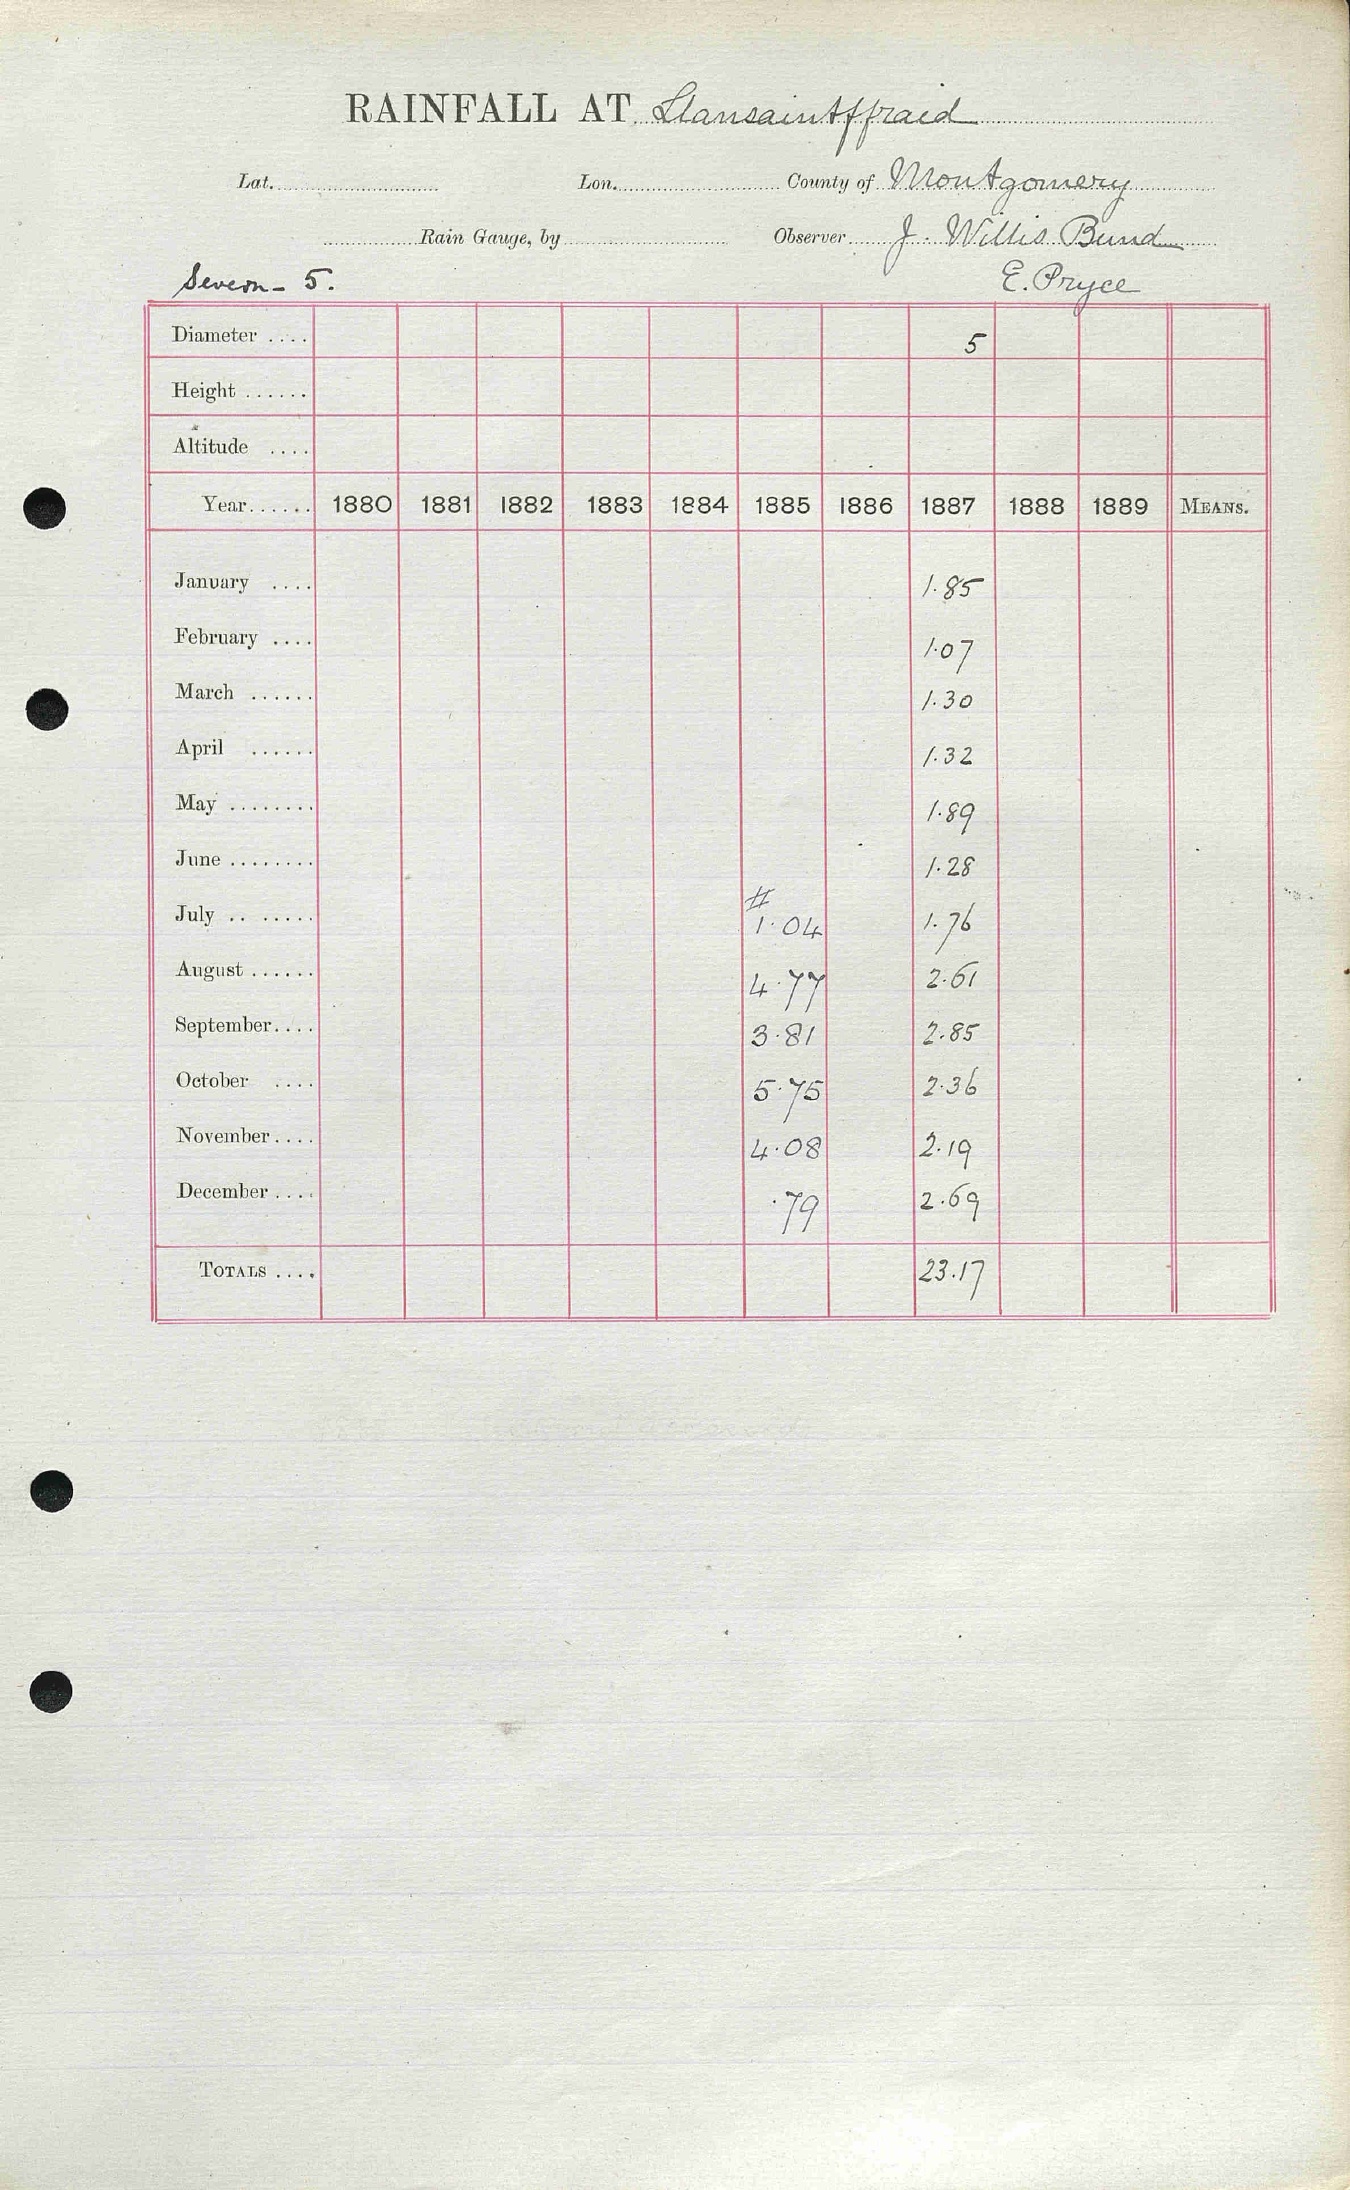 RAINFALL AT Llansaintffraid
Lat. Lon. County of Montgomery
Rain Gauge, by Observer J. Willis Bund
Severn - 5. E. Pryce
Diameter .... 5
Height ......
Altitude ....
Year...... 1880 1881 1882 1883 1884 1885 1886 1887 1888 1889 MEANS.
January .... 1.85
February .... 1.07
March ...... 1.30
April ...... 1.32
May ........ 1.89
June ........ 1.28
#
July .. ..... 1.04 1.76
August ...... 4.77 2.61
September.... 3.81 2.85
October .... 5.75 2.36
November.... 4.08 2.19
December .... .79 2.69
TOTALS .... 23.17